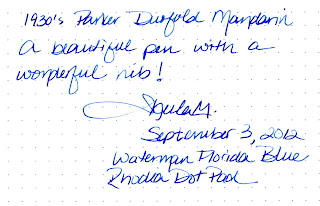 1930's Parker Duofold Mandarin
A beautiful pen with a
wonderful nib!
Sheila M.
September 3, 2012
Waterman Florida Blue
Rhodia Dot Pad